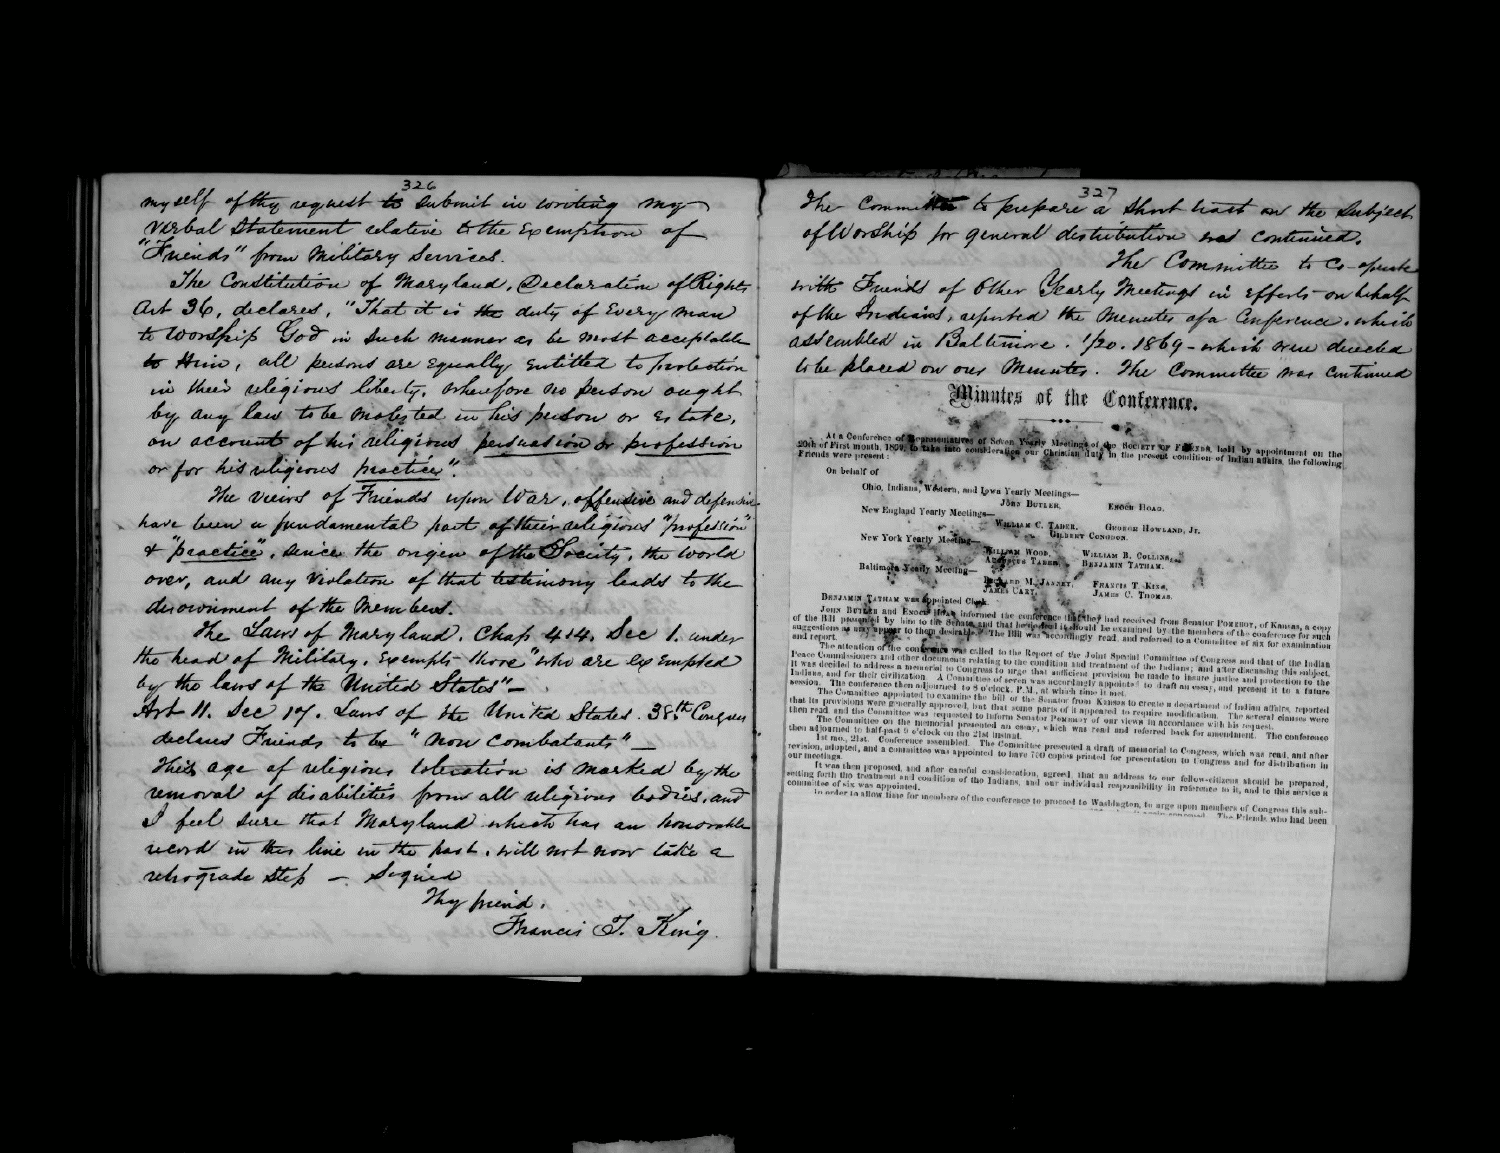 326
myself of thy request to submit in writing my
verbal statement relative to the exemption of
"Friends" from Military Services.
The Constitution of Maryland, Declaration of Rights
Art 36, declares, "That it is the duty of Every man
to worship God in such manner as be most acceptable
to Him, all persons are equally entitled to protection
in their religious liberty, wherefore no person ought
by any law to be molested in his person or Estate,
on account of his religious persuasion or profession
or for his religious practice".
The views of Friends upon War, offensive and defensive
have been a fundamental part of their religious "profession"
& "practice", since the origin of the Society, the world
over, and any violation of that testimony leads to the
disownment of the Members.
The Laws of Maryland, Chap 414, Sec 1. under
the head of Military, exempts those "who are exempted
by the laws of the United States" —
Art 11. Sec 17. Laws of the United States. 38th Congress
declares Friends to be "non combatants" —
This age of religious toleration is marked by the
removal of disabilities from all religious bodies, and
I feel sure that Maryland which has an honorable
record in this line in the past, will not now take a
retrograde step — Signed
Thy friend,
Francis T. King.
327
The Committee to prepare a short tract on the subject
of Worship for general distribution was continued.
The Committee to Co-operate
with Friends of Other Yearly Meetings in efforts on behalf
of the Indians, reported the Minutes of a Conference, which
assembled in Baltimore. 1/20. 1869 - which were directed
to be placed on our Minutes. The Committee was continued
Minutes of the Conference.
At a Conference of Representatives of Seven Yearly Meetings of the SOCIETY OF FRIENDS, held by appointment on the
20th of First month, 1869, to take into consideration our Christian duty in the present condition of Indian affairs, the following
Friends were present:
On behalf of
Ohio, Indiana, Western, and Iowa Yearly Meetings—
JOHN BUTLER, ENOCH HOAG.
New England Yearly Meetings—
WILLIAM C. TABER, GEORGE HOWLAND, JR.
GILBERT CONGDON.
New York Yearly Meeting—
WILLIAM WOOD, WILLIAM B. COLLINS,
AUGUSTUS TABER, BENJAMIN TATHAM.
Baltimore Yearly Meeting—
RICHARD M. JANNEY, FRANCIS T. KING,
JAMES CAREY, JAMES C. THOMAS.
BENJAMIN TATHAM was appointed Clerk.
JOHN BUTLER and ENOCH HOAG informed the conference that they had received from Senator POMEROY, of Kansas, a copy
of the Bill presented by him to the Senate, and that he desired it should be examined by the members of the conference for such
suggestions as may appear to them desirable. The Bill was accordingly read, and referred to a Committee of six for examination
and report.
The attention of the conference was called to the Report of the Joint Special Committee of Congress and that of the Indian
Peace Commissioners and other documents relating to the condition and treatment of the Indians; and after discussing this subject,
it was decided to address a memorial to Congress to urge that sufficient provision be made to insure justice and protection to the
Indians, and for their civilization. A Committee of seven was accordingly appointed to draft an essay, and present it to a future
session. The conference then adjourned to 8 o'clock, P.M., at which time it met.
The Committee appointed to examine the bill of the Senator from Kansas to create a department of Indian affairs, reported
that its provisions were generally approved, but that some parts of it appeared to require modification. The several clauses were
then read, and the Committee was requested to inform Senator POMEROY of our views in accordance with his request.
The Committee on the memorial presented an essay, which was read and referred back for amendment. The conference
then adjourned to half-past 9 o'clock on the 21st instant.
1st mo., 21st. Conference assembled. The Committee presented a draft of memorial to Congress, which was read, and after
revision, adopted, and a committee was appointed to have 750 copies printed for presentation to Congress and for distribution in
our meetings.
It was then proposed, and after careful consideration, agreed, that an address to our fellow-citizens should be prepared,
setting forth the treatment and condition of the Indians, and our individual responsibility in reference to it, and to this service a
committee of six was appointed.
In order to allow time for members of the conference to proceed to Washington, to urge upon members of Congress this sub-
The Friends who had been